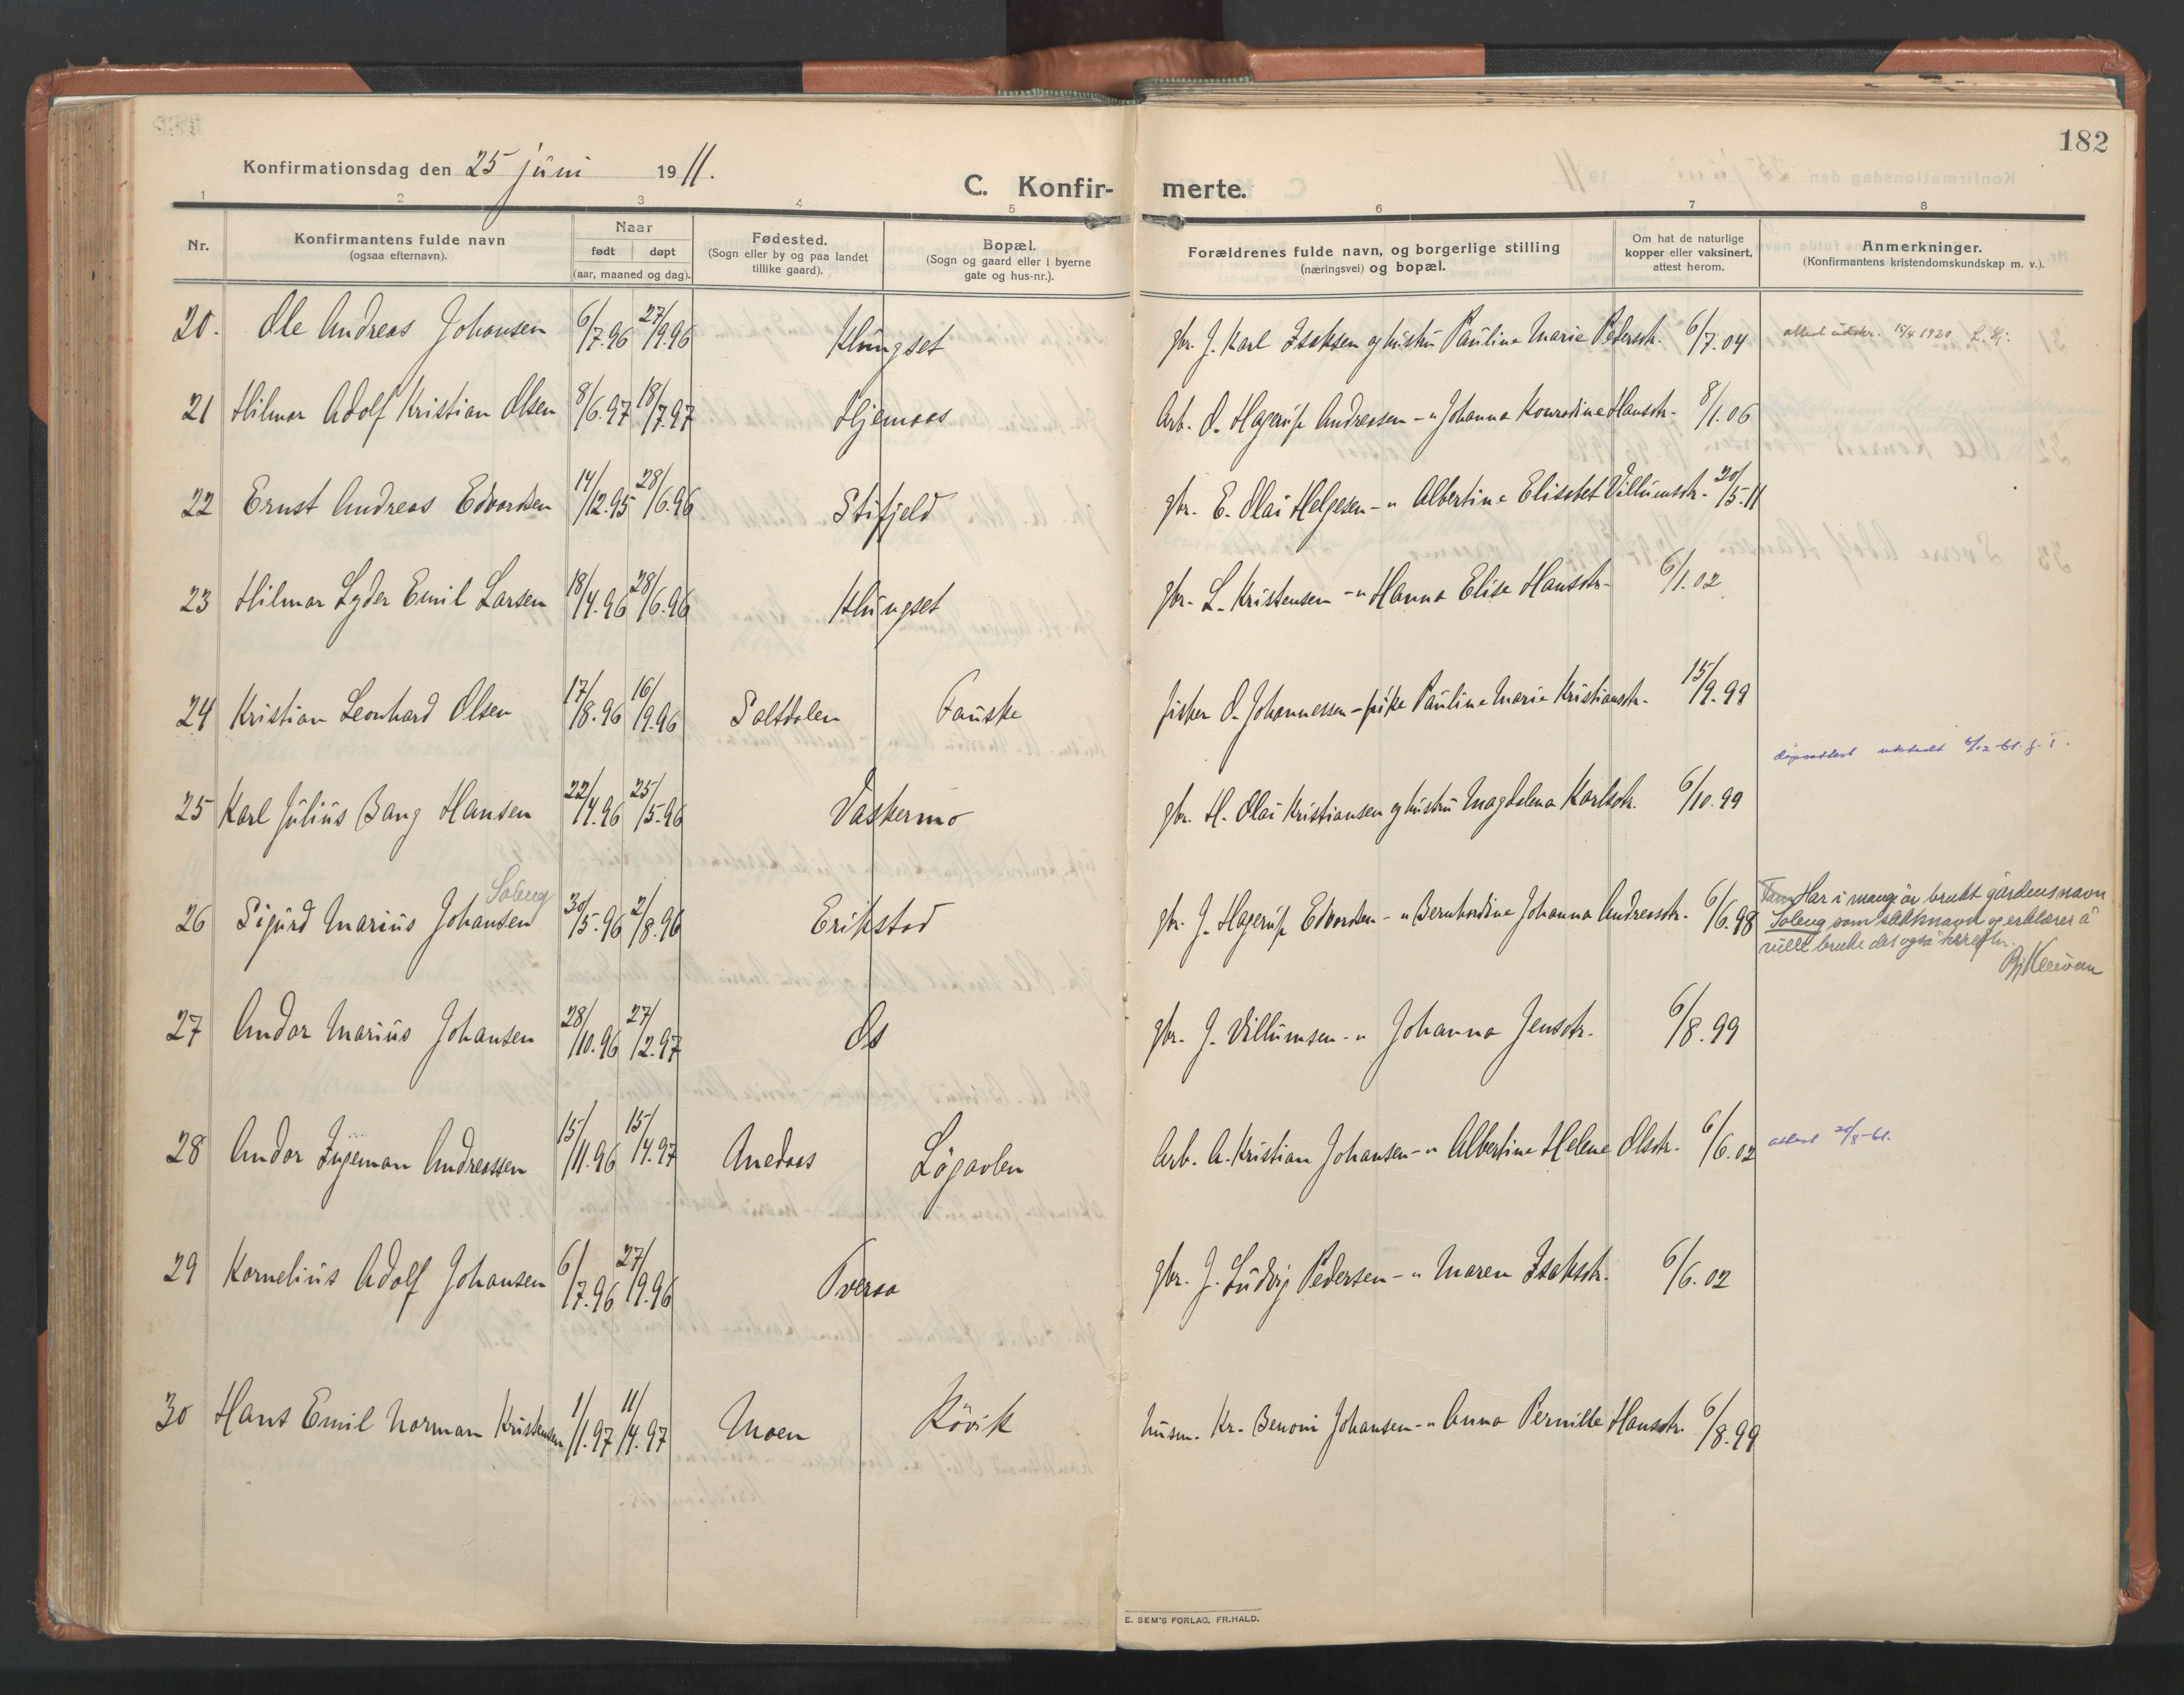 182
Konfirmationsdag den 25 juni 1911.
C. Konfirmerte.
1 2 3 4 5 6 7 8
Nr.
Konfirmantens fulde navn
(ogsaa efternavn).
Naar
født døpt
(aar, maaned og dag).
Fødested.
(Sogn eller by og paa landet
tillike gaard).
Bopæl.
(Sogn og gaard eller i byerne
gate og hus-nr.).
Forældrenes fulde navn, og borgerlige stilling
(næringsvei) og bopæl.
Om hat de naturlige
kopper eller vaksinert,
attest herom.
Anmerkninger.
(Konfirmantens kristendomskundskap m. v.).
20. Ole Andreas Johansen 6/7.96 27/9.96 Klungset gbr. J. Karl Isaksen og hustru Pauline Marie Pedersdtr. 6/7.04 attest utskr. 15/4 1920
21 Hilmar Adolf Kristian Olsen 8/6.97 18/7.97 Hjemaas Arb. O. Hagerup Andreasen -"- Johanna Konradine Hansdtr. 8/1.06
22 Ernst Andreas Edvardsen 14/12.95 28/6.96 Stifjeld gbr. E. Olai Helgesen -"- Albertine Elisabet Villumsdtr. 20/5.11
23 Hilmar Lyder Emil Larsen 18/4.96 28/6.96 Klungset gbr. L. Kristensen -"- Hanna Elise Hansdtr. 6/1.02
24 Kristian Leonhard Olsen 17/8.96 16/9.96 Saltdalen Fauske fisker O. Johannessen - pike Pauline Marie Kristiansdtr. 15/9.99
dåpsattest utstedt 6/12-61.
25 Karl Julius Bang Hansen 22/4.96 25/5.96 Vaskermo gbr. H. Olai Kristiansen og hustru Magdalena Karlsdtr. 6/10.99
Soleng
26 Sigurd Marius Johansen 30/5.96 2/8.96 Erikstad gbr. J. Hagerup Edvardsen -"- Bernhardine Johanna Andreasdtr. 6/6.98 Har i mange år brukt gårdens navn
Soleng som slektsnavn og erklærer å
ville bruke det også herefter.
27 Andor Marius Johansen 28/10.96 27/12.97 Os gbr. J. Villumsen -"- Johanna Jensdtr. 6/8.99
28 Andor Ingeman Andreassen 15/11.96 15/4.97 Anedaas Løgavlen Arb. A. Kristian Johansen -"- Albertine Helene Olsdtr. 6/6.02 attest 20/8-61.
29 Kornelius Adolf Johansen 6/7.96 27/9.96 Tveraa gbr. J. Ludvig Pedersen -"- Maren Isaksdtr. 6/6.02
30 Hans Emil Norman Kristensen 1/1.97 11/4.97 Moen Røvik husm. Kr. Benoni Johansen -"- Anna Pernille Hansdtr. 6/8.99
E. SEM'S FORLAG, FR.HALD.